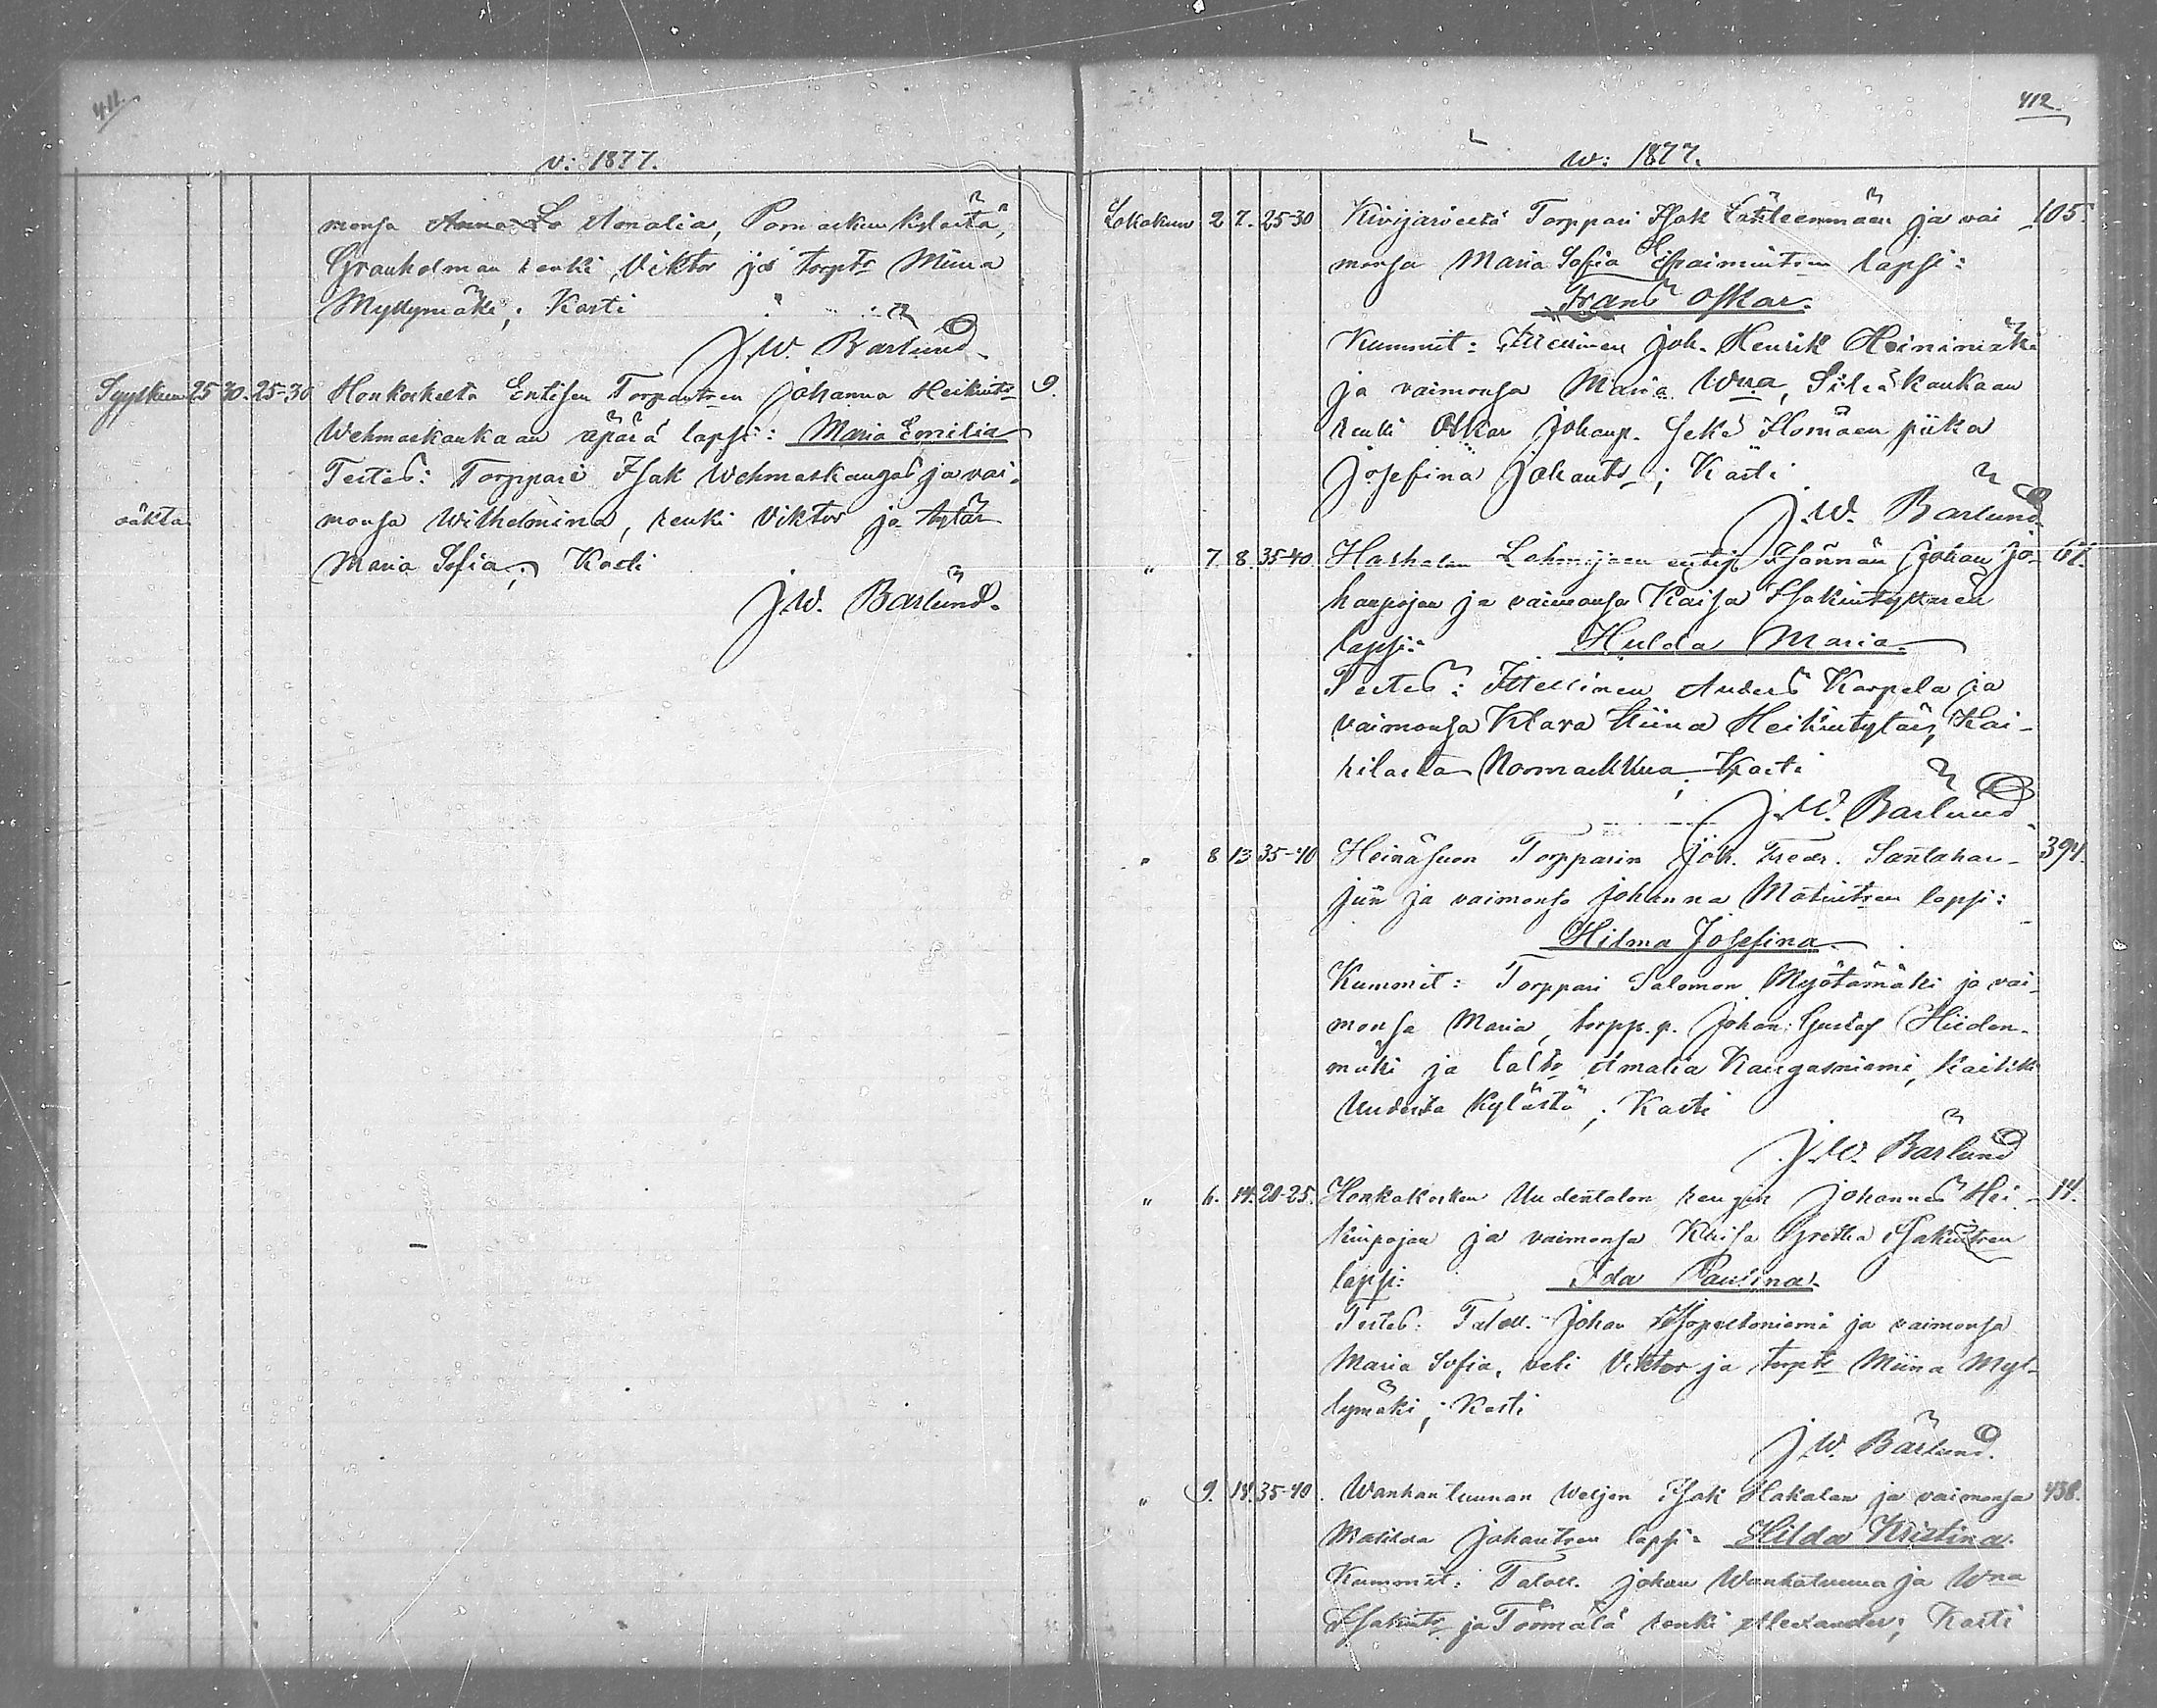 411.
v: 1877.
monsa Amalia, Pomarkun kylästä,
Granholman renki Viktor ja torptr Miina
Myllymäki; Kasti
J. W. Bärlund.
Syyskuun 25 30. 25-30 Honkoskelta Entisen Torpantren Johanna Heikints 9.
Wehmaskankaan äpärä lapsi: Maria Emilia
Testes: Torppari Isak Wehmaskangas ja vai-
oäkta monsa Wilhelmina, renki Viktor ja tytär
Maria Sofia; Kasti
J. W. Bärlund.
412.
w: 1877.
Lokakuun 2 7. 25-30 Kivijärveltä Torppari Isak Lähteenmäen ja vai 105
monsa Maria Sofia Efraimintren lapsi:
Frans Oskar.
Kummit: Itsellinen Joh. Henrik Heinimäki
ja vaimonsa Maria Wna, Sileäkankaan
renki Oskar Johanp. sekä piika
Josefina Johants; Kasti
J. W. Bärlund.
" 7. 8. 35-40 Lehmijoen Isännän Johan Jo- 67.
hanpojan ja vaimonsa Kaisa Isakintyttären
lapsi: Hulda Maria.
Testes: Itsellinen Anders Karpela ja
vaimonsa Klara Stiina Heikintytär, Kai-
rilasta Normarkkua; Kasti
J. W. Bärlund.
" 8 13 35-40 Heinäsuon Torpparin Joh. Fredr. Santahar- 394.
jun ja vaimonsa Johanna Matintren lapsi:
Hilma Josefina
Kummit: Torppari Salomon Myötämäki ja vai-
monsa Maria, torpp.p. Johan Gustaf Hiiden-
mäki ja taltr Amalia Kangasniemi, kaikki
Uudesta kylästä; Kasti
J. W. Bärlund
" 6. 14. 20-25. Honkakosken Uudentalon rengin Johannes Hei- 14.
kinpojan ja vaimonsa Kaisa Gretha Isakintren
lapsi: Ida Paulina.
Testes: Taloll. Johan ja vaimonsa
Maria Sofia, veli Viktor ja torptr Miina Myl-
lymäki; Kasti
J. W. Bärlund.
" 9. 14. 35-40. Wanhantuunan Weljen Isak Hakalan ja vaimonsa 438.
Matilda Johantren lapsi: Hilda Kristina.
Kummit: Taloll. Johan Wanhatuuna ja Wna
Isakints ja Törmälä renki Alexander; Kasti